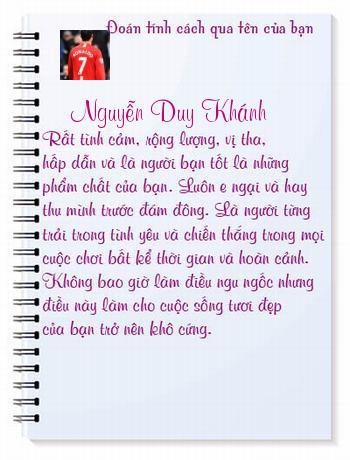 Đoán tính cách qua tên của bạn
RONALDO
7
Nguyễn Duy Khánh
Rất tình cảm, rộng lượng, vị tha,
hấp dẫn và là người bạn tốt là những
phẩm chất của bạn. Luôn e ngại và hay
thu mình trước đám đông. Là người từng
trải trong tình yêu và chiến thắng trong mọi
cuộc chơi bất kể thời gian và hoàn cảnh.
Không bao giờ làm điều ngu ngốc nhưng
điều này làm cho cuộc sống tươi đẹp
của bạn trở nên khô cứng.